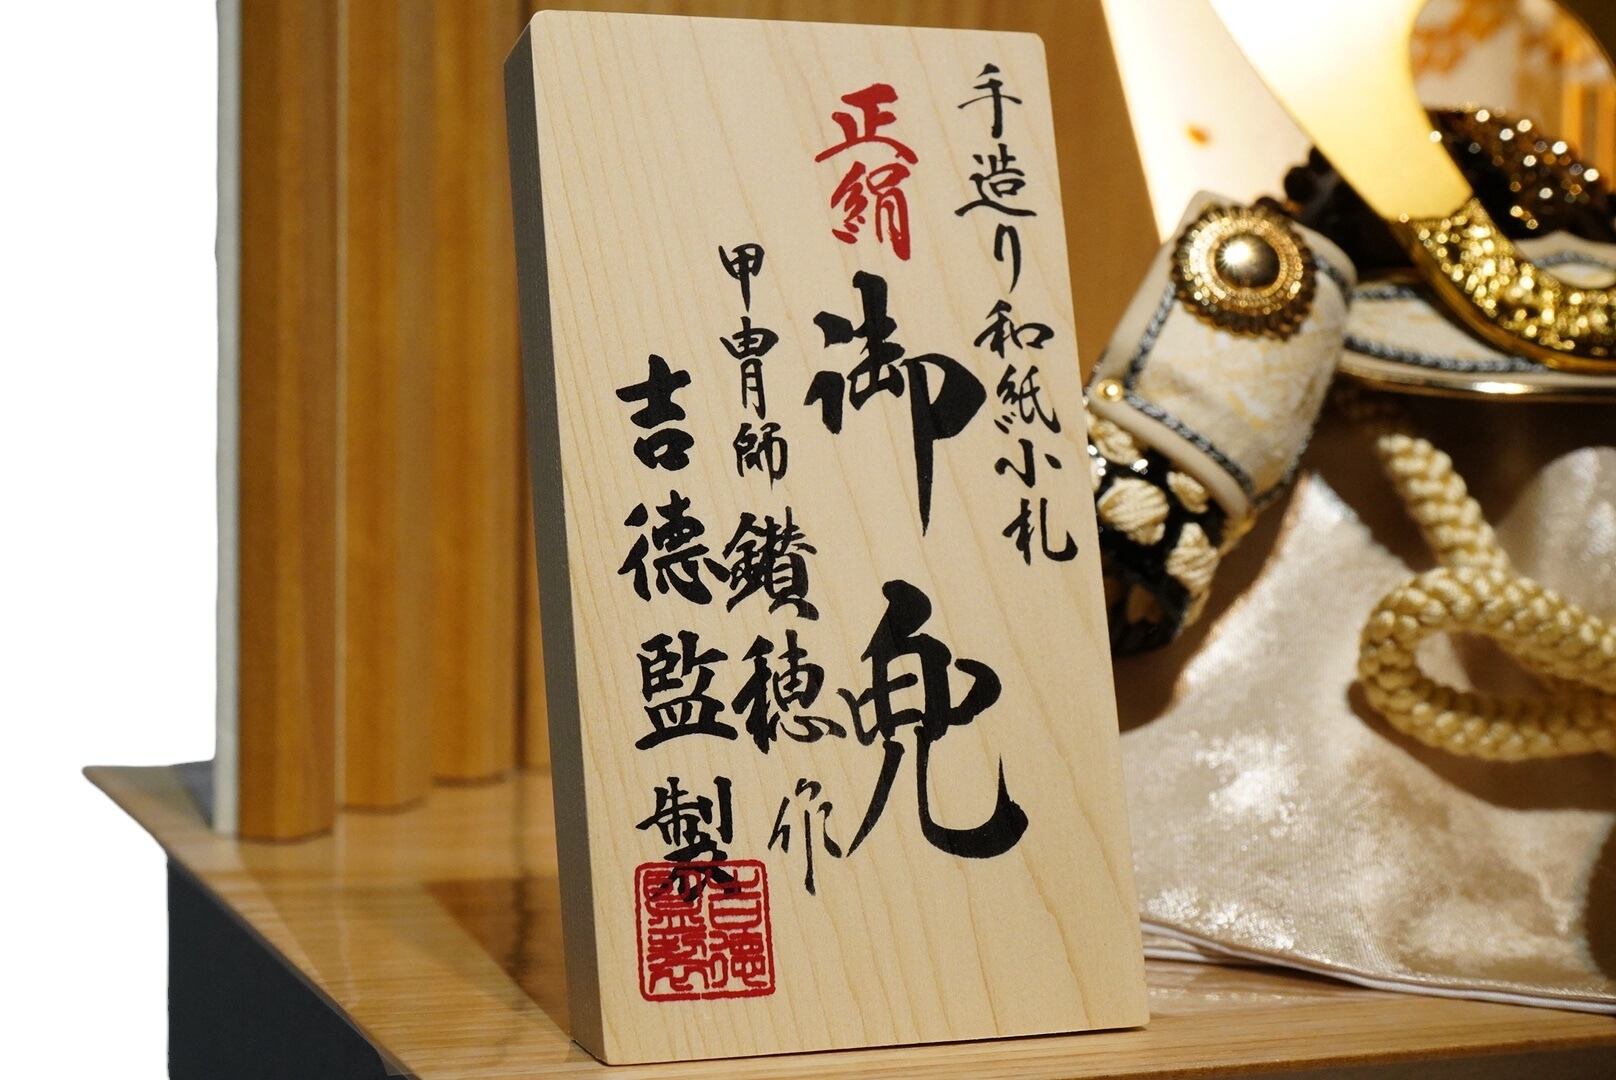 手造り和紙小札
正絹
御兜
甲冑師 鑚穂 作
吉徳監製
吉徳
監製